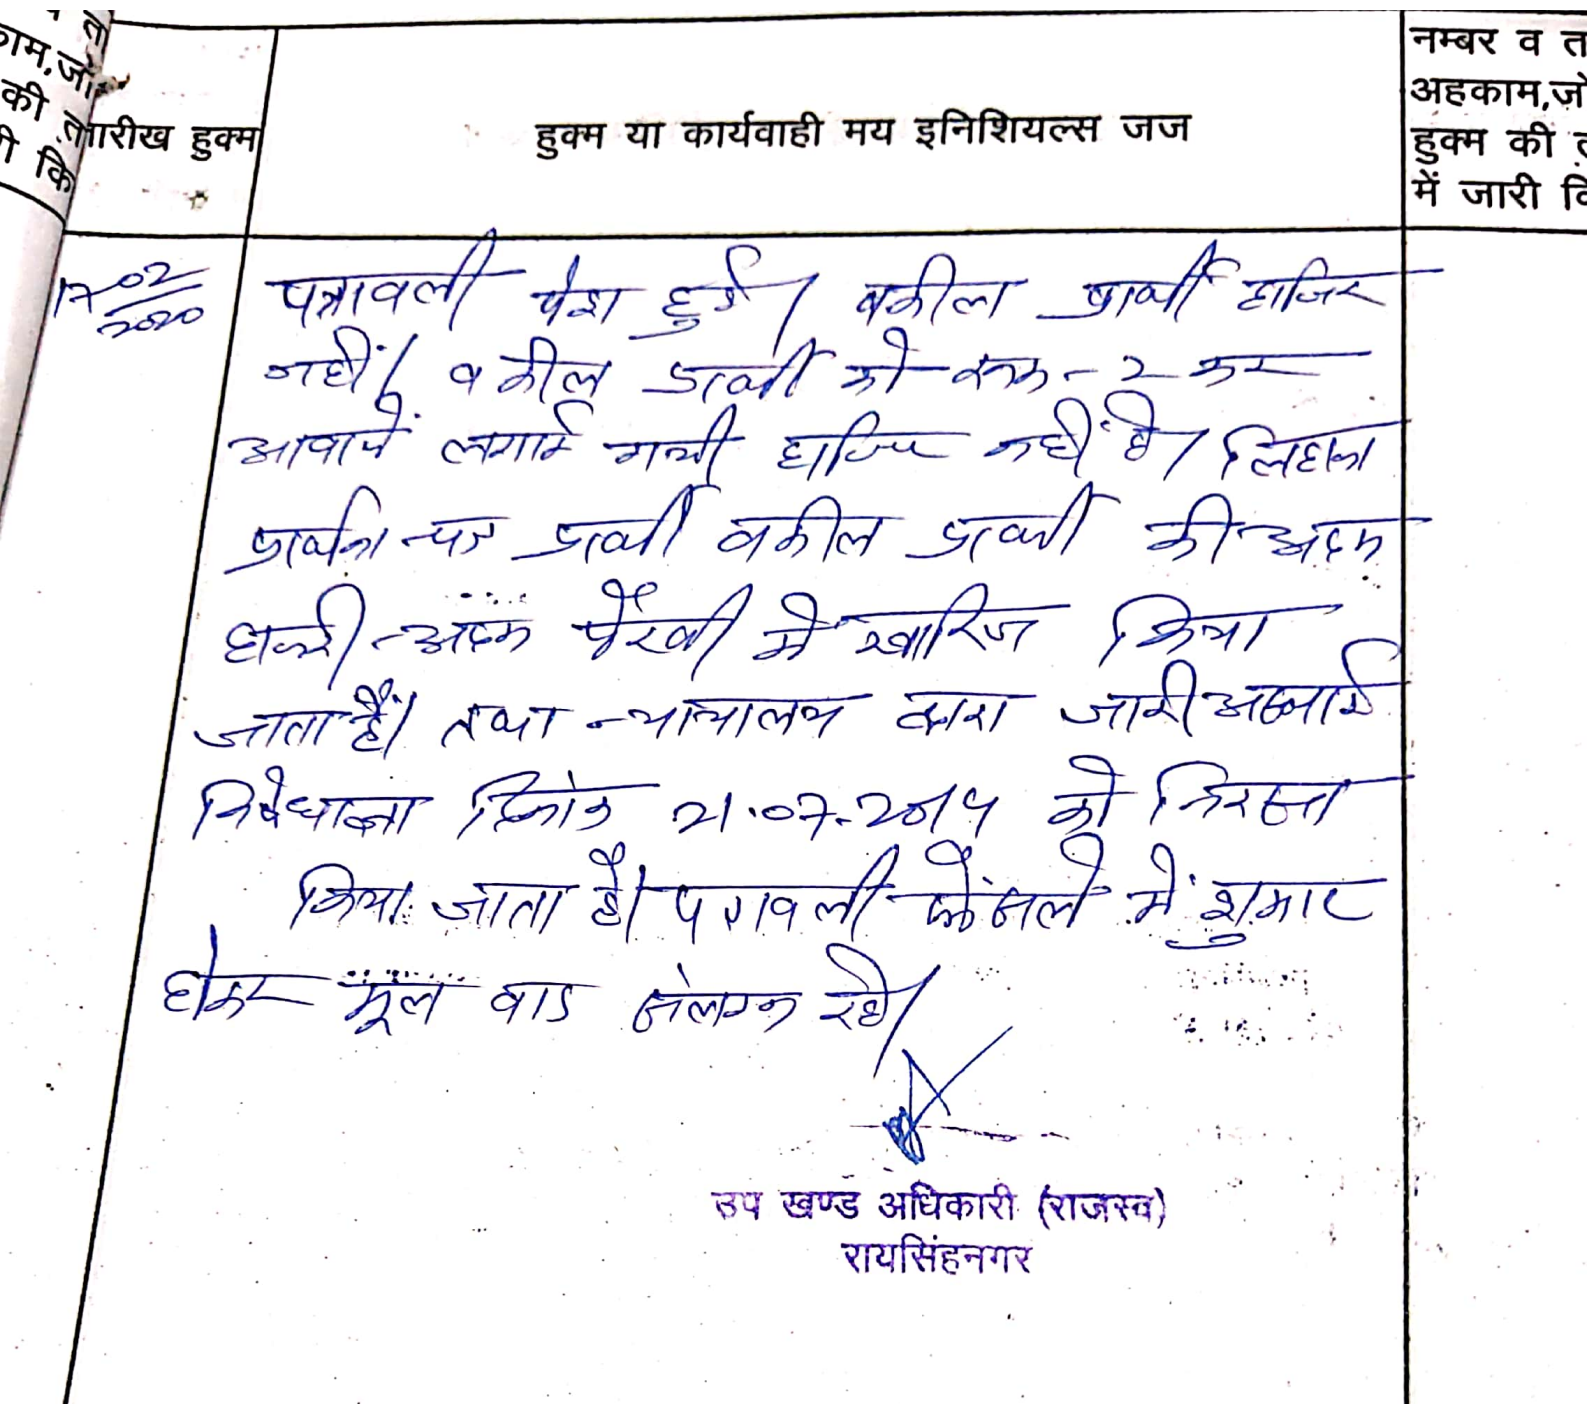 त
ाम,जो
की त
ी कि
तारीख हुक्म
हुक्म या कार्यवाही मय इनिशियल्स जज
नम्बर व त
अहकाम,जो
हुक्म की त
में जारी कि
17-02
2020
पत्रावली पेश हुई। वकील प्रार्थी हाजिर
नहीं। वकील प्रार्थी को रूक-2 कर
आवाजें लगाई गयी हाजिर नहीं है। लिहाजा
प्रार्थना-पत्र प्रार्थी वकील प्रार्थी की अदम
हाजरी-अदम पैरवी में खारिज किया
जाता है। तथा न्यायालय द्वारा जारी अस्थाई
निषेधाज्ञा दिनांक 21.07.2014 को निरस्त
किया जाता है। पत्रावली फैंसले में शुमार
होकर मूल वाद संलग्न रहे।
उप खण्ड अधिकारी (राजस्व)
रायसिंहनगर